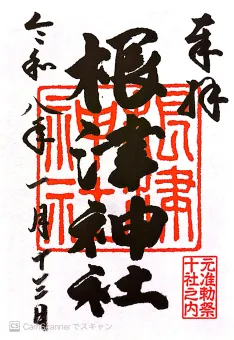 奉拝
根津神社
根津神社
元准勅祭
十社之内
令和八年一月十三日
CS CamScannerでスキャン